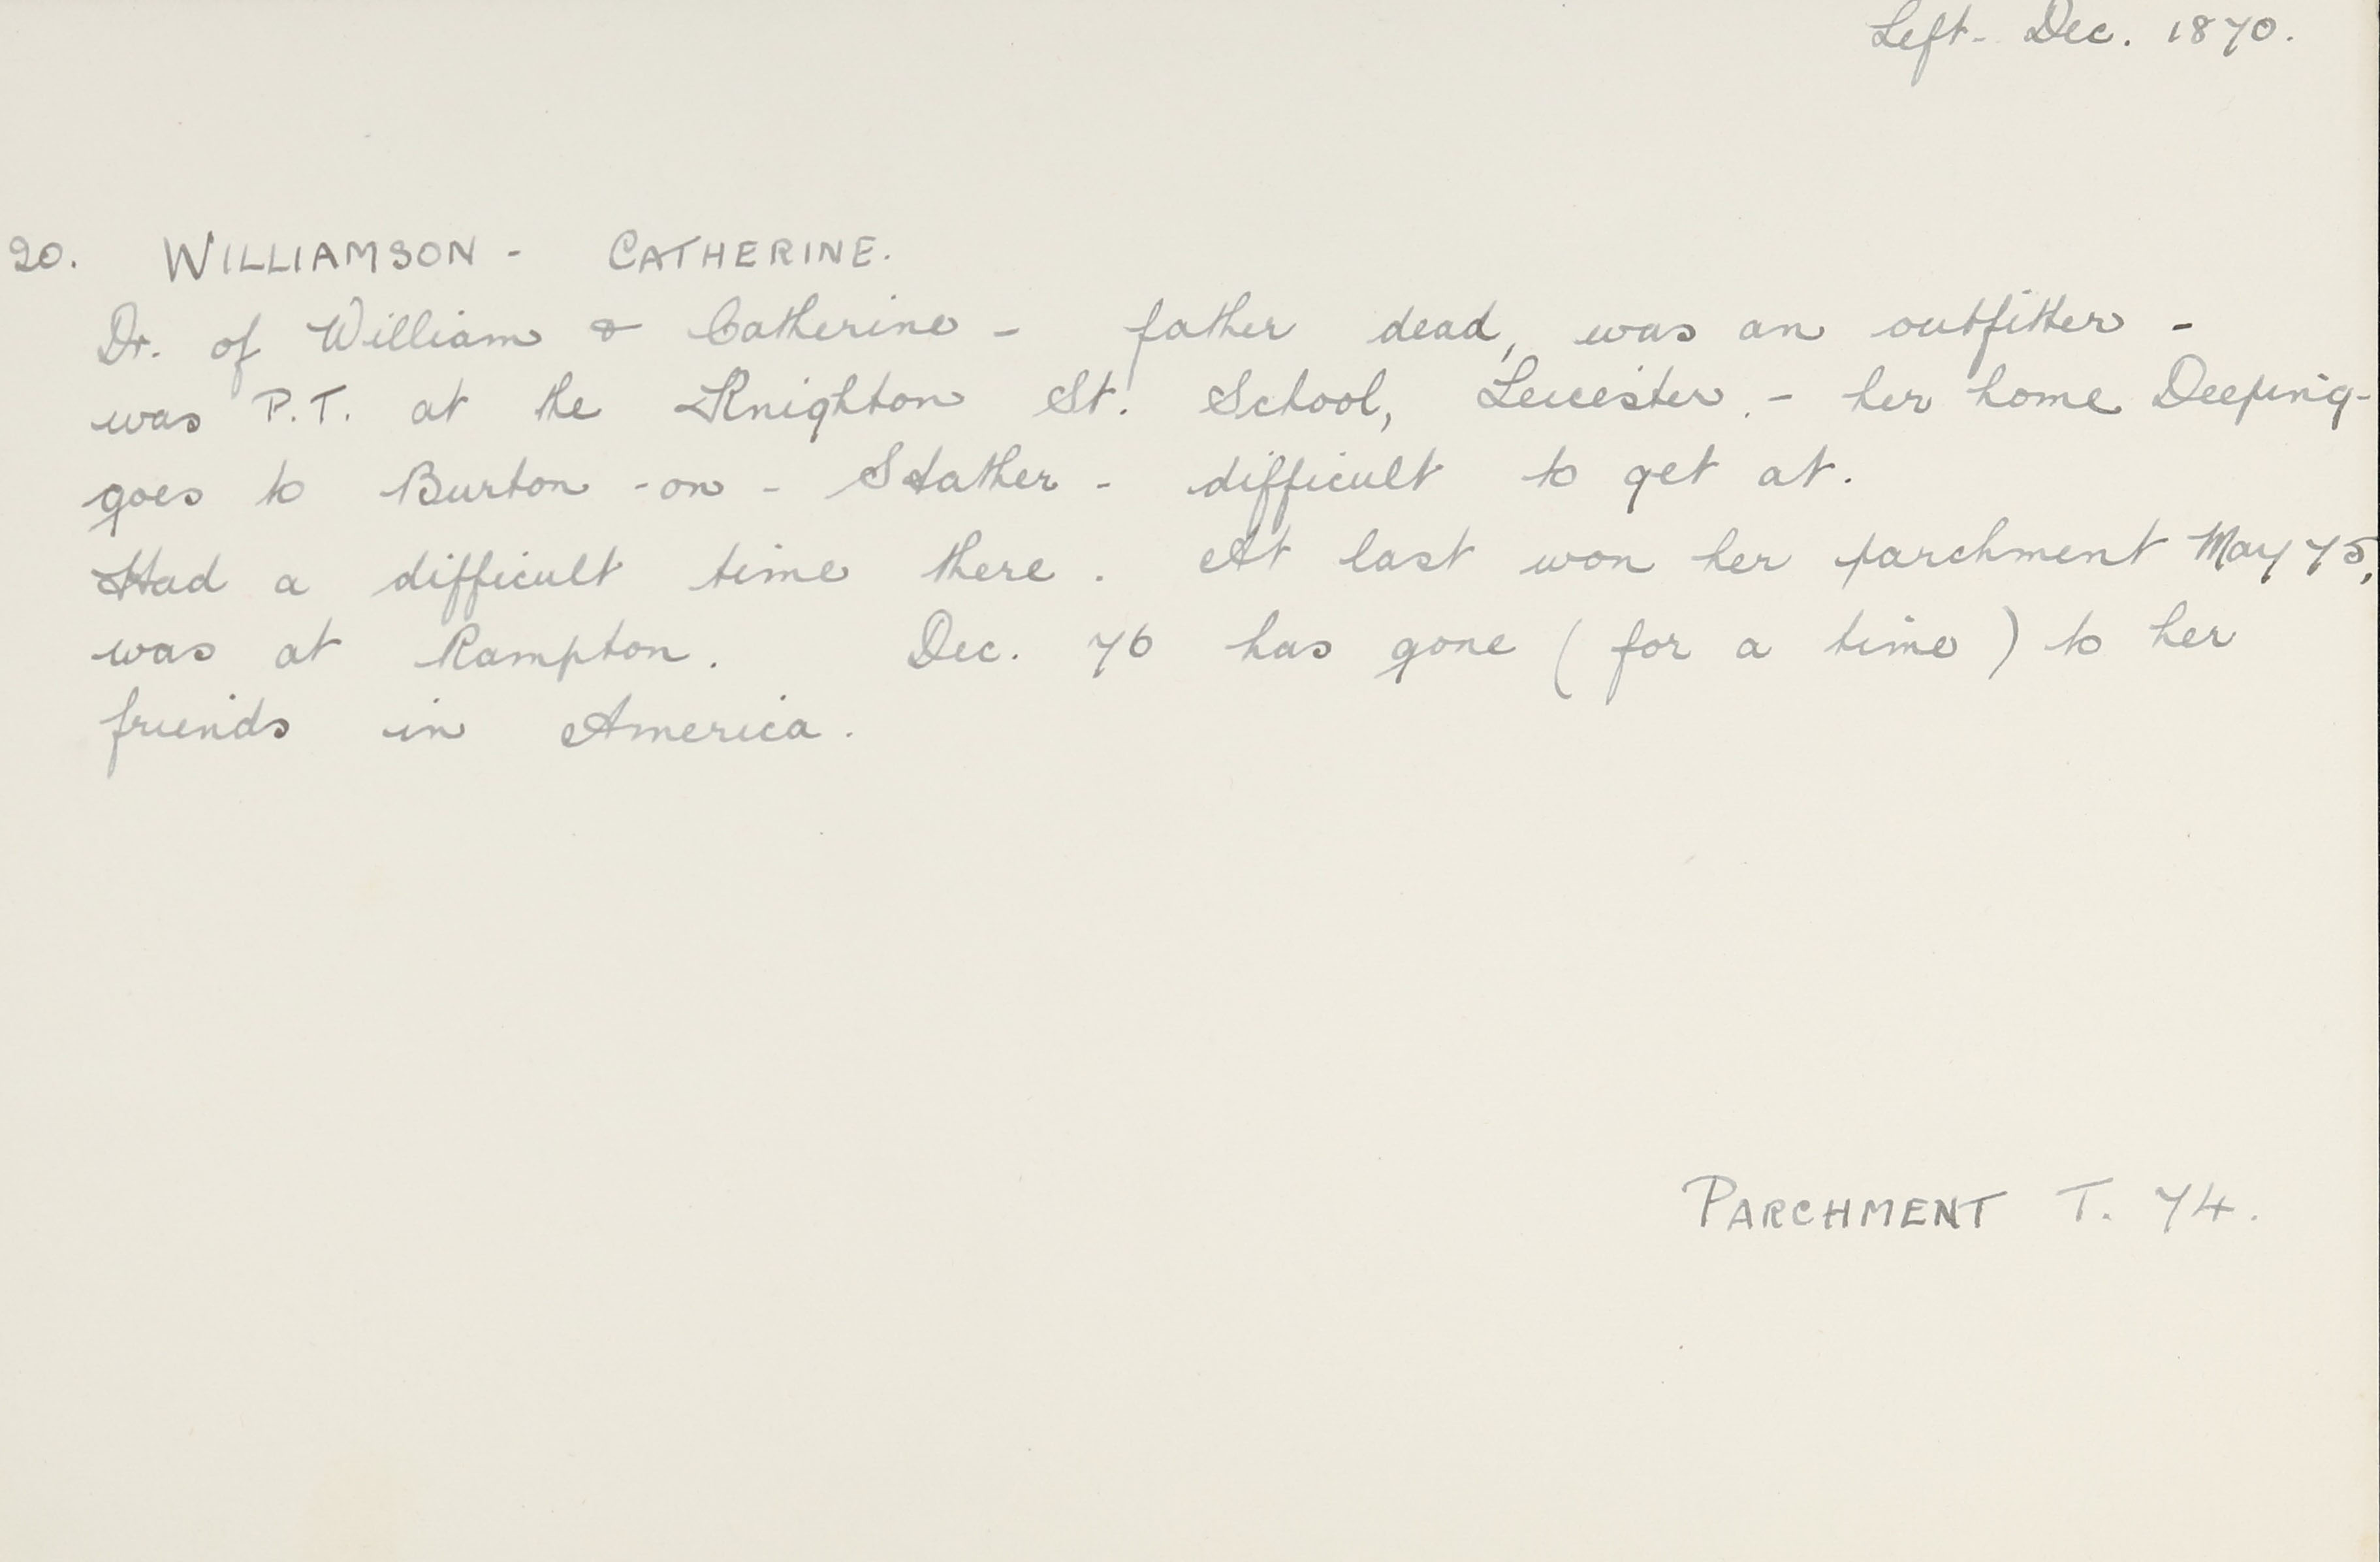 Left- Dec. 1870.
20. WILLIAMSON - CATHERINE.
Dr. of William & Catherine - father dead, was an outfitter -
was P.T. at the Knighton St. School, Leicester. - her home Deeping-
goes to Burton -on - Stather - difficult to get at.
Had a difficult time there. At last won her parchment May 75,
was at Rampton. Dec. 76 has gone (for a time) to her
friends in America.
PARCHMENT T. 74.